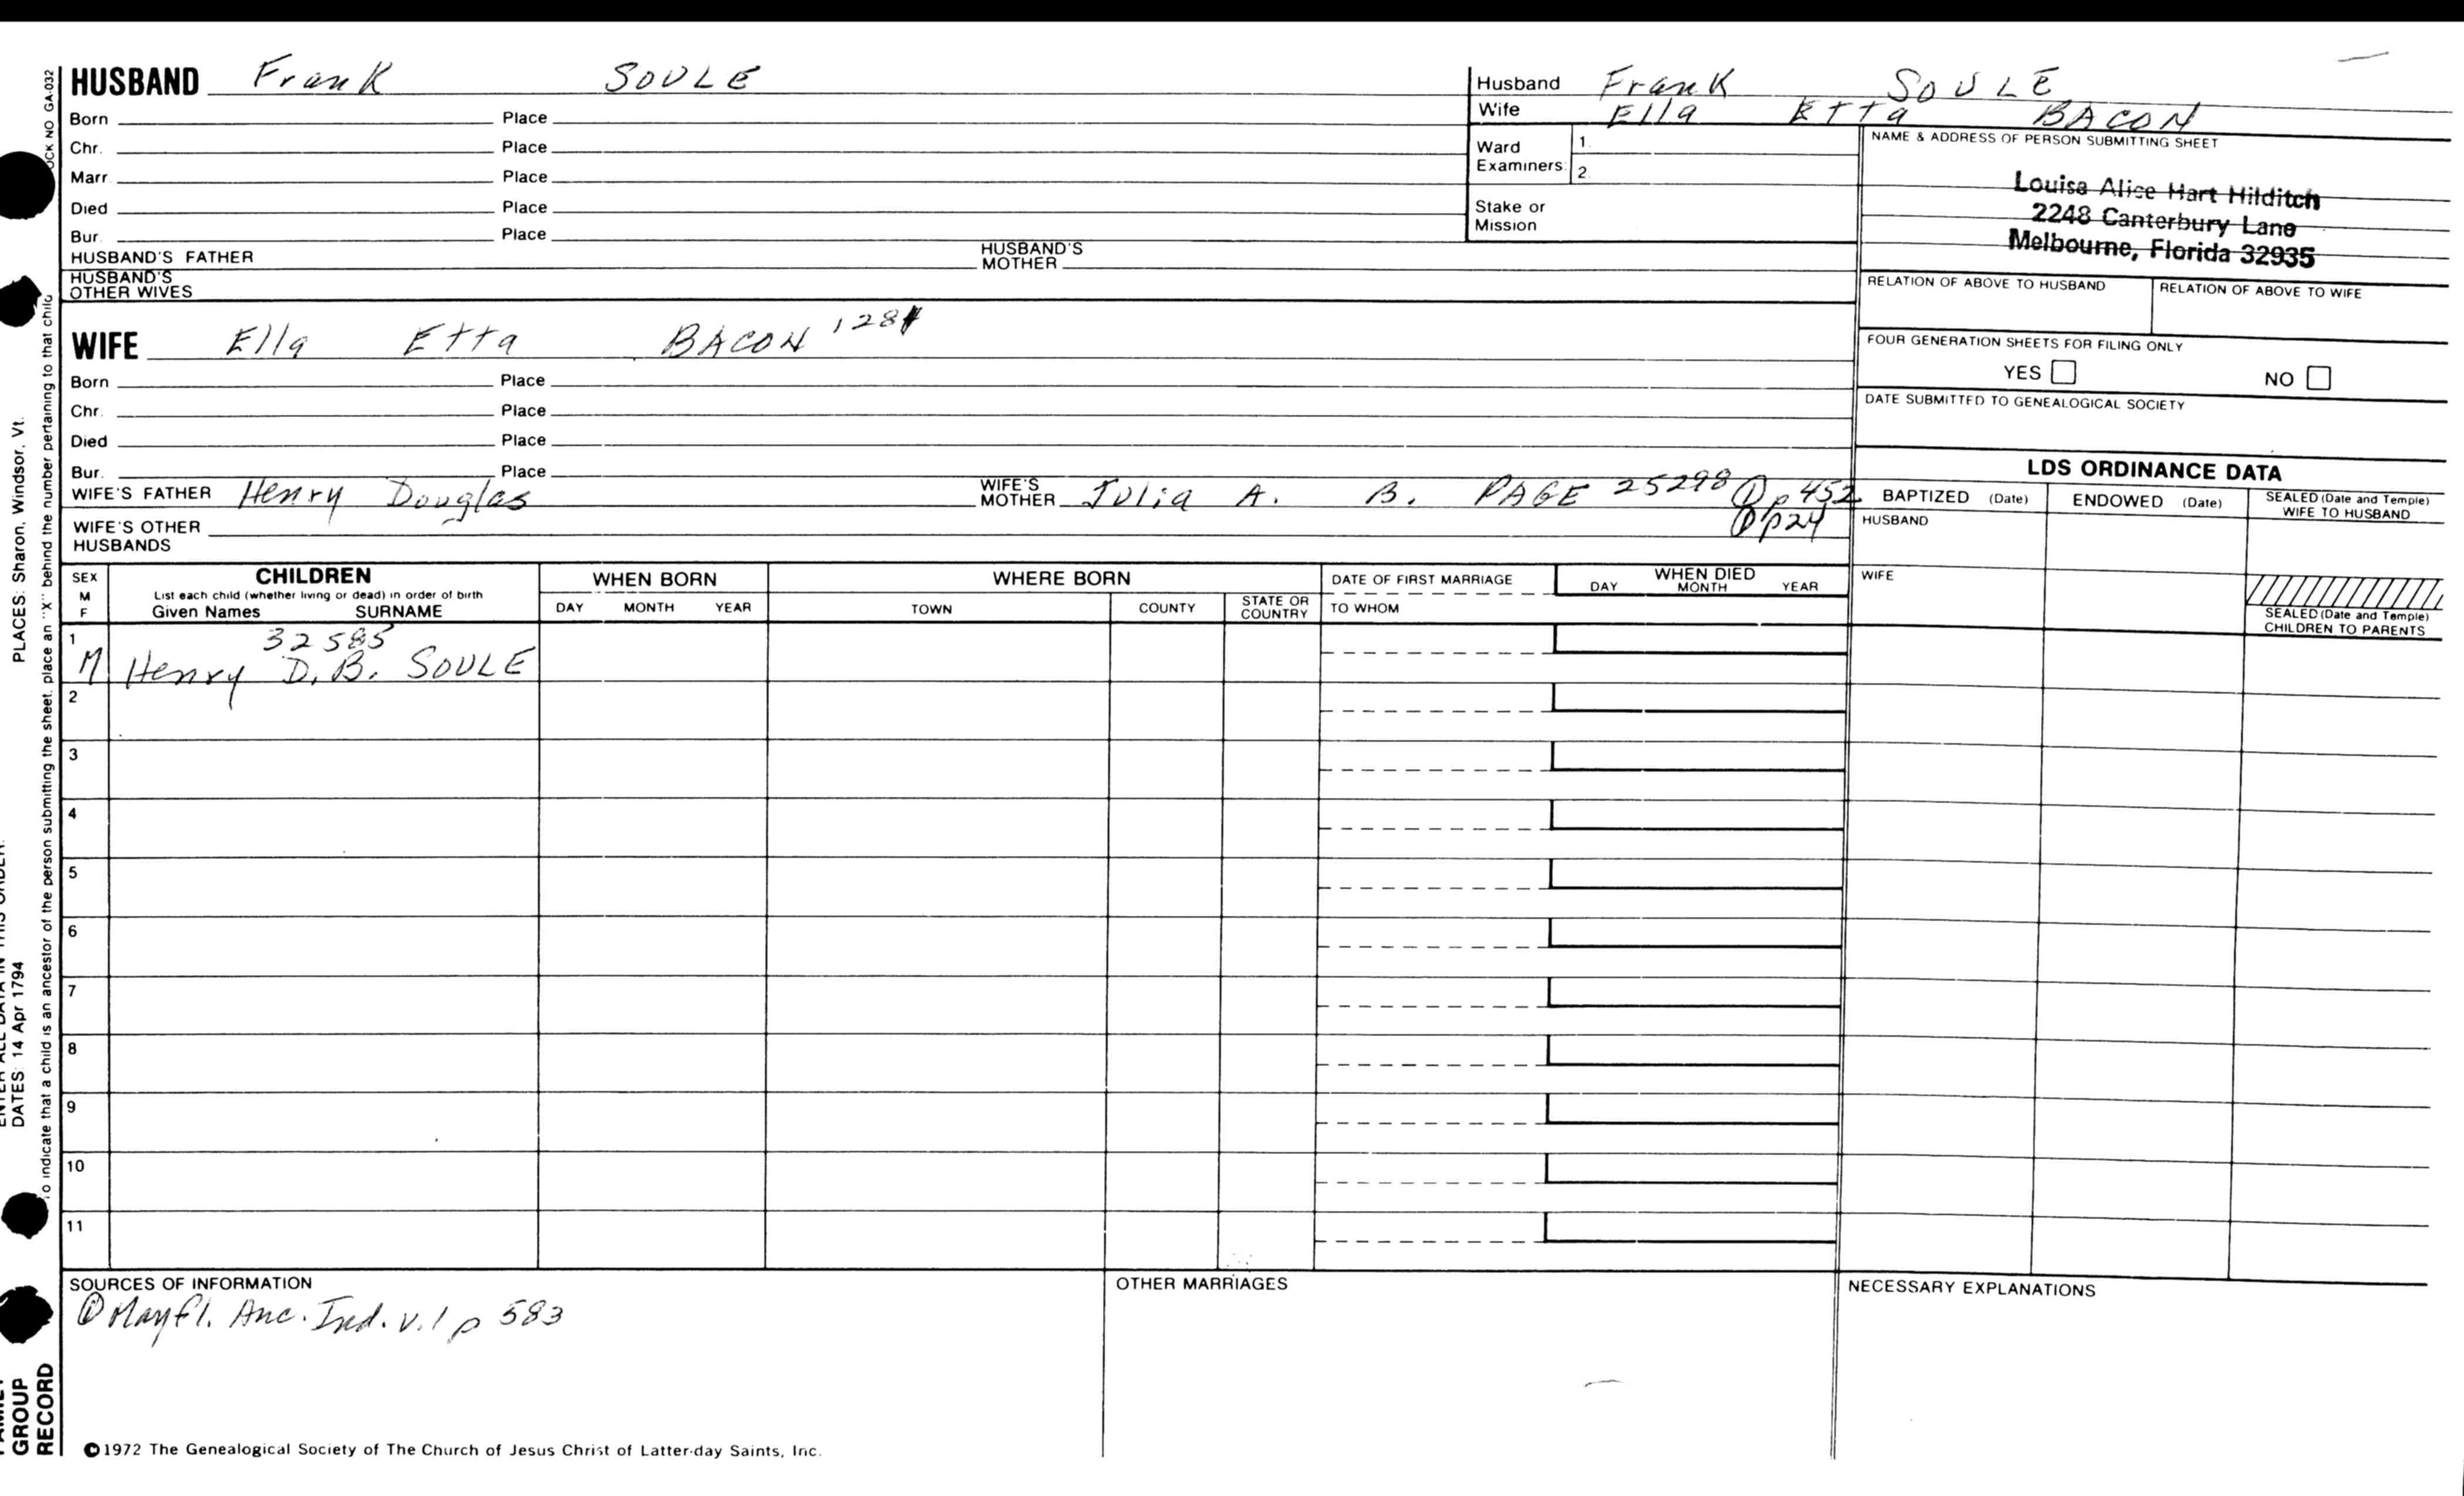 HUSBAND Frank SOULE
Born Place
Chr. Place
Marr. Place
Died Place
Bur. Place
HUSBAND'S FATHER HUSBAND'S MOTHER
HUSBAND'S OTHER WIVES
Husband Frank SOULE
Wife Ella Etta BACON
Ward Examiners: 1. 2.
Stake or Mission
NAME & ADDRESS OF PERSON SUBMITTING SHEET
Louisa Alice Hart Hilditch
2248 Canterbury Lane
Melbourne, Florida 32935
RELATION OF ABOVE TO HUSBAND RELATION OF ABOVE TO WIFE
FOUR GENERATION SHEETS FOR FILING ONLY
YES NO
DATE SUBMITTED TO GENEALOGICAL SOCIETY
WIFE Ella Etta BACON
Born Place
Chr. Place
Died Place
Bur. Place
WIFE'S FATHER Henry Douglas WIFE'S MOTHER Julia A. B. PAGE 25298 p 452
p24
WIFE'S OTHER HUSBANDS
LDS ORDINANCE DATA
BAPTIZED (Date) ENDOWED (Date) SEALED (Date and Temple) WIFE TO HUSBAND
HUSBAND
WIFE
SEALED (Date and Temple) CHILDREN TO PARENTS
SEX M F CHILDREN WHEN BORN WHERE BORN DATE OF FIRST MARRIAGE WHEN DIED
List each child (whether living or dead) in order of birth
Given Names SURNAME DAY MONTH YEAR TOWN COUNTY STATE OR COUNTRY TO WHOM DAY MONTH YEAR
1 32585
M Henry D. B. SOULE
2
3
4
5
6
7
8
9
10
11
SOURCES OF INFORMATION OTHER MARRIAGES NECESSARY EXPLANATIONS
① Mayfl. Anc. Ind. v. 1 p 583
©1972 The Genealogical Society of The Church of Jesus Christ of Latter-day Saints, Inc.
OCK NO GA-032
To indicate that a child is an ancestor of the person submitting the sheet, place an "X" behind the number pertaining to that child
PLACES: Sharon, Windsor, Vt.
DATES: 14 Apr 1794
GROUP
RECORD